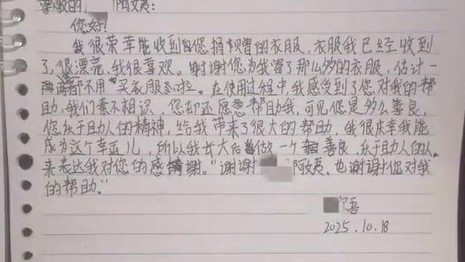 尊敬的,阿姨:
您好!
我很荣幸能收到由您捐赠的衣服,衣服我已经收到
了,很漂亮,我很喜欢。谢谢您为我留了那么多的衣服,估计一
都不用买衣服啦。在使用过程中,我感受到了您对我的帮
助,我们素不相识,您却还愿意帮助我,可见您是多么善良,
您乐于助人的精神,给我带来了很大的帮助,我很庆幸我能
成为这个幸运儿,所以我长大后做一个善良、乐于助人的人,
来表达我对您的感谢。"谢谢阿姨,也谢谢您对我
的帮助。"
2025.10.18